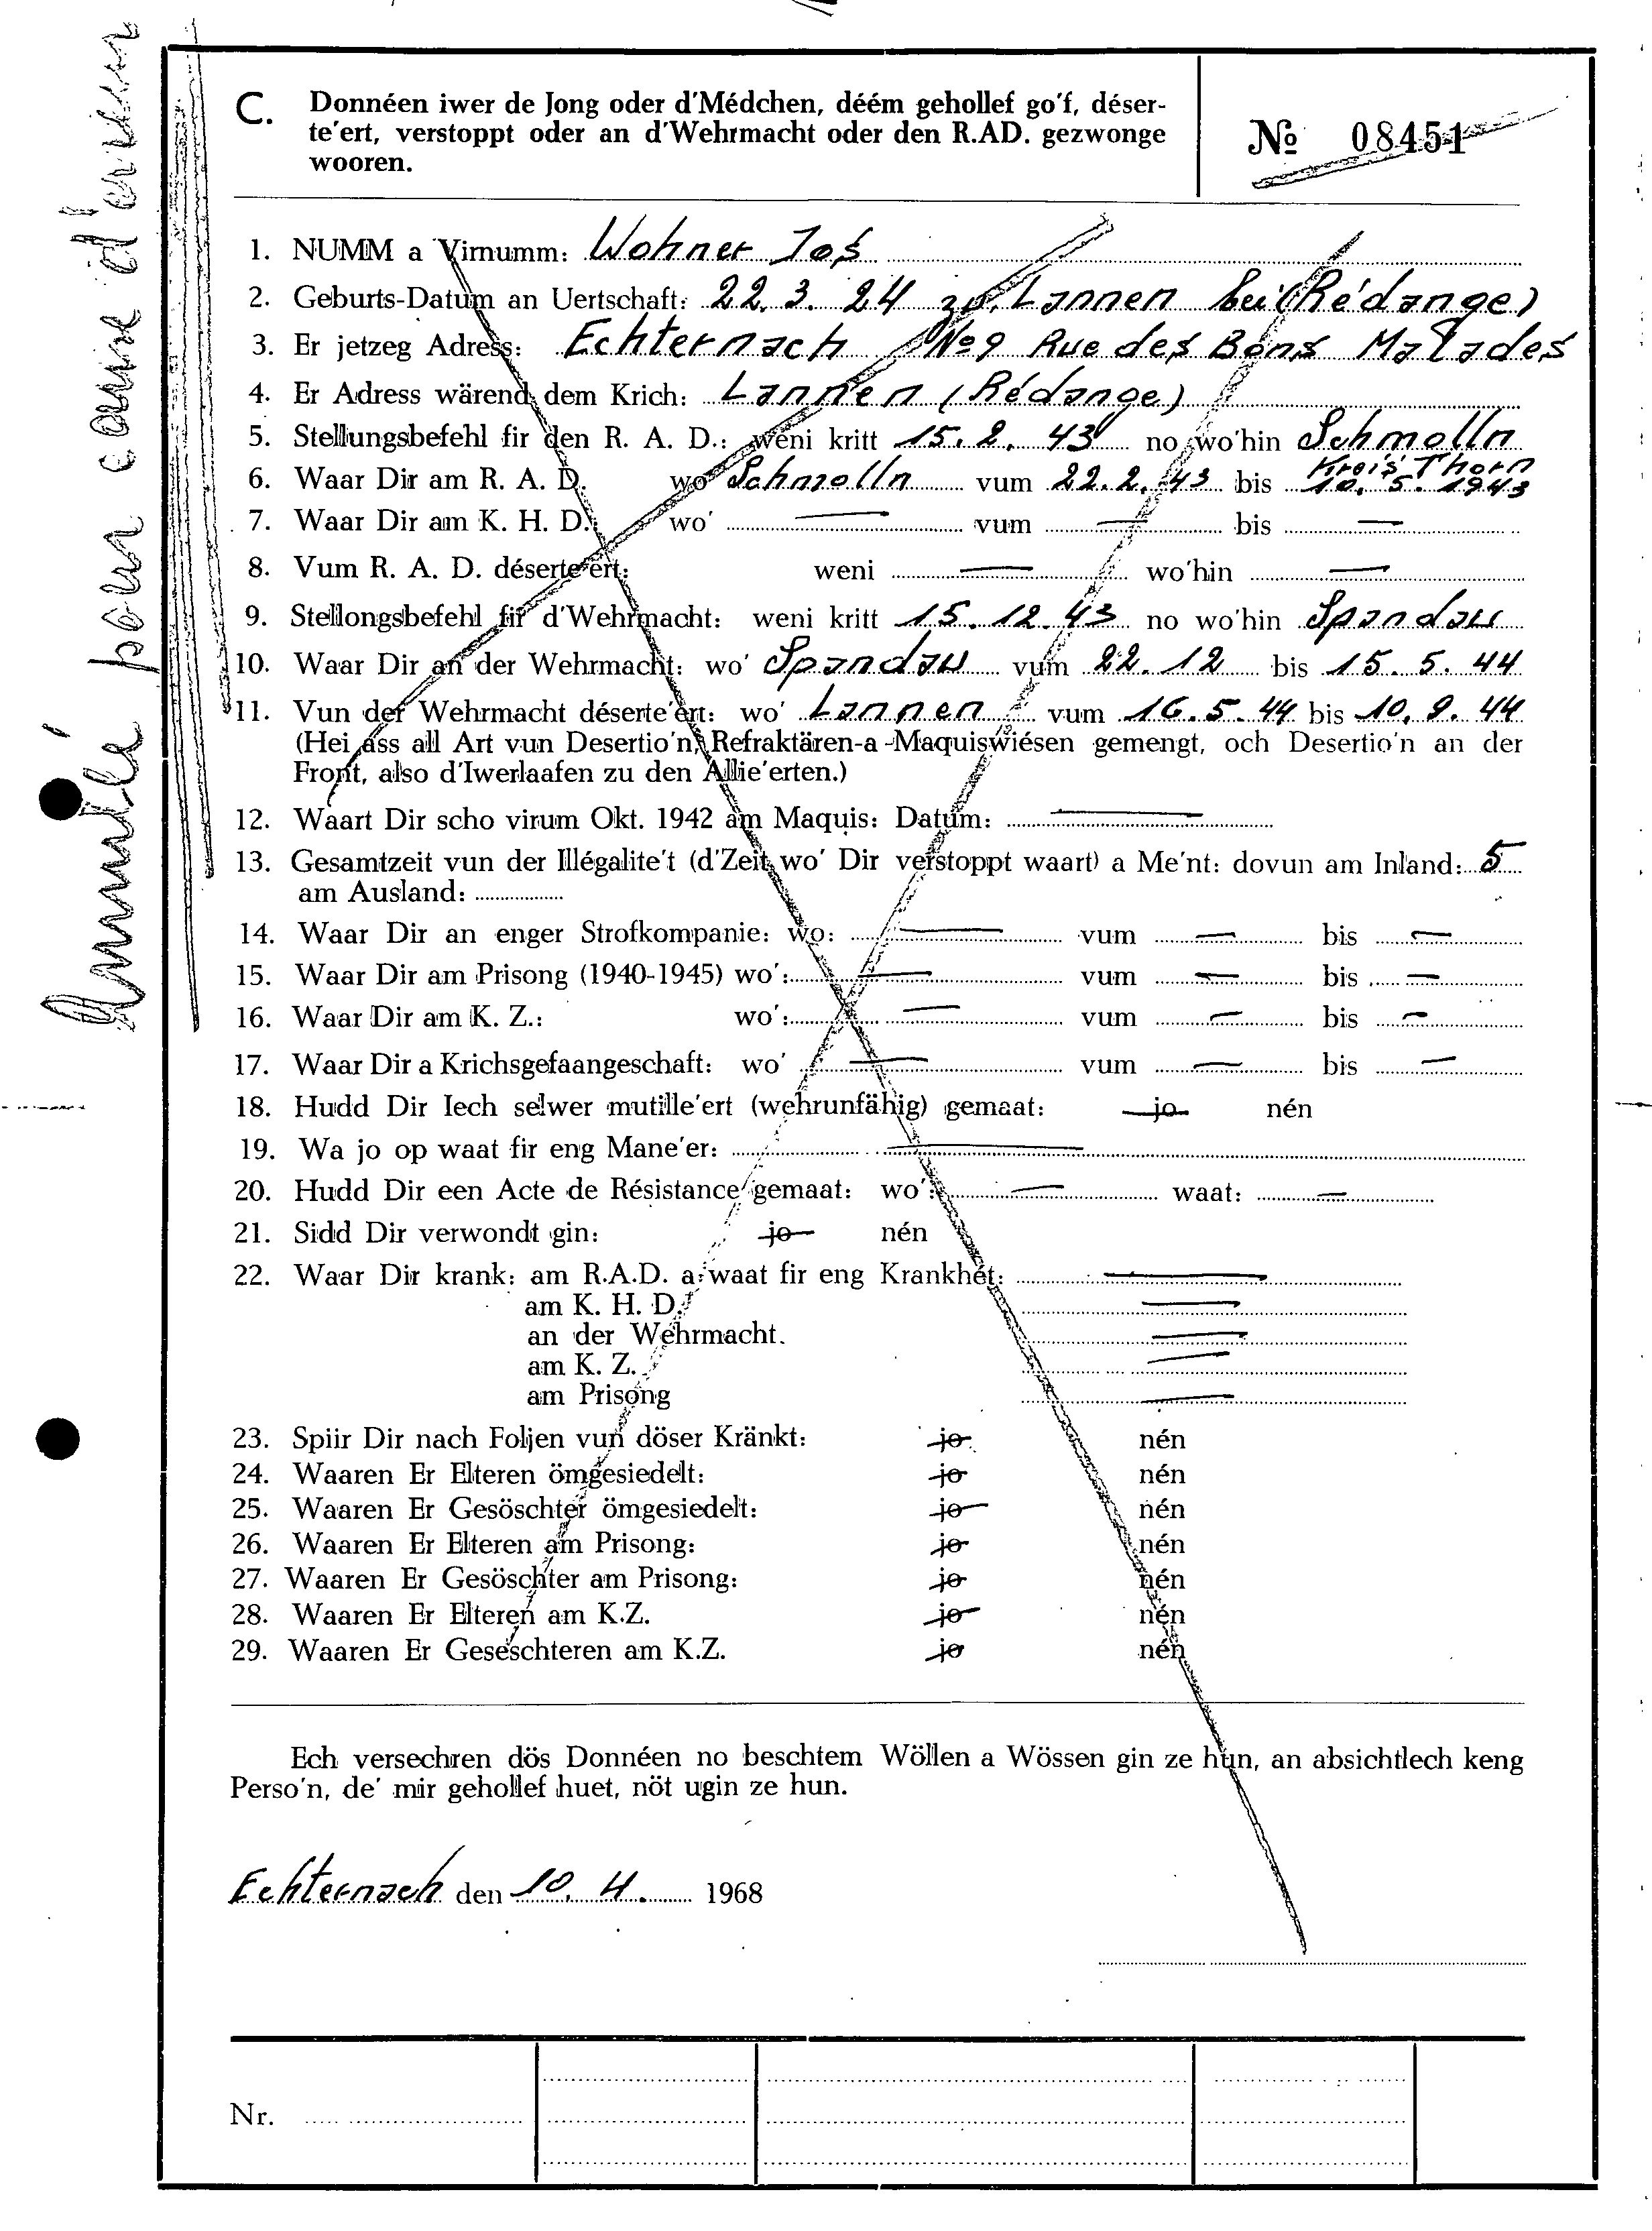 Annulé pour cause d'erreur
C. Donnéen iwer de Jong oder d'Médchen, déém gehollef go'f, déser-
te'ert, verstoppt oder an d'Wehrmacht oder den R.AD. gezwonge
wooren.
№ 08451
1. NUMM a Virnumm: Wohner Jos
2. Geburts-Datum an Uertschaft: 22. 3. 24 zu Lannen bei (Rédange)
3. Er jetzeg Adress: Echternach No 9 Rue des Bons Malades
4. Er Adress wärend dem Krich: Lannen (Rédange)
5. Stellungsbefehl fir den R. A. D.: weni kritt 15. 2. 43 no wo'hin Schmolln
Kreis Thorn
6. Waar Dir am R. A. D. wo' Schmolln vum 22. 2. 43 bis 10. 5. 1943
7. Waar Dir am K. H. D. wo' — vum — bis —
8. Vum R. A. D. déserte'ert: weni — wo'hin —
9. Stellongsbefehl fir d'Wehrmacht: weni kritt 15. 12. 43 no wo'hin Spandau
10. Waar Dir an der Wehrmacht: wo' Spandau vum 22. 12 bis 15. 5. 44
11. Vun der Wehrmacht déserte'ert: wo' Lannen vum 16. 5. 44 bis 10. 9. 44
(Hei ass all Art vun Desertio'n, Refraktären-a -Maquiswiésen gemengt, och Desertio'n an der
Front, also d'Iwerlaafen zu den Allie'erten.)
12. Waart Dir scho virum Okt. 1942 am Maquis: Datum: —
13. Gesamtzeit vun der Illégalite't (d'Zeit wo' Dir verstoppt waart) a Me'nt: dovun am Inland: 5
am Ausland:
14. Waar Dir an enger Strofkompanie: wo: — vum — bis —
15. Waar Dir am Prisong (1940-1945) wo': — vum — bis —
16. Waar Dir am K. Z.: wo': — vum — bis —
17. Waar Dir a Krichsgefaangeschaft: wo' — vum — bis —
18. Hudd Dir Iech selwer mutille'ert (wehrunfähig) gemaat: jo nén
19. Wa jo op waat fir eng Mane'er: —
20. Hudd Dir een Acte de Résistance gemaat: wo': — waat: —
21. Sidd Dir verwondt gin: jo nén
22. Waar Dir krank: am R.A.D. a waat fir eng Krankhét: —
am K. H. D. —
an der Wehrmacht. —
am K. Z. —
am Prisong —
23. Spiir Dir nach Foljen vun döser Kränkt: jo nén
24. Waaren Er Elteren ömgesiedelt: jo nén
25. Waaren Er Gesöschter ömgesiedelt: jo nén
26. Waaren Er Elteren am Prisong: jo nén
27. Waaren Er Gesöschter am Prisong: jo nén
28. Waaren Er Elteren am K.Z. jo nén
29. Waaren Er Geseschteren am K.Z. jo nén
Ech versechren dös Donnéen no beschtem Wöllen a Wössen gin ze hun, an absichtlech keng
Perso'n, de' mir gehollef huet, nöt ugin ze hun.
Echternach den 10. 4. 1968
Nr.